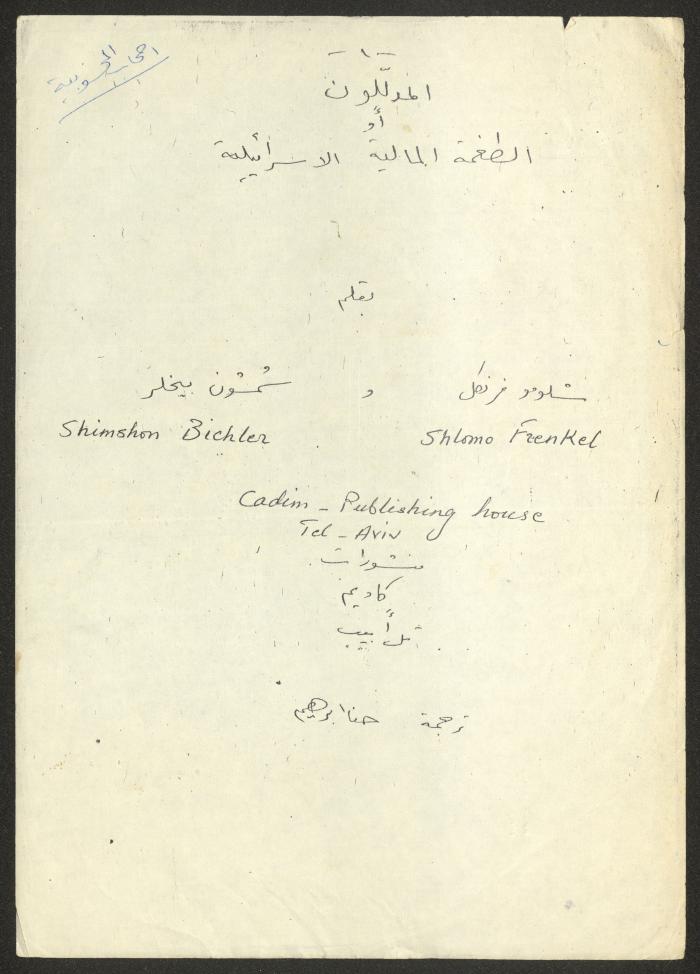 - ١ -
أصحاب المحسوبية
المدلّلون
أو
الطغمة المالية الاسرائيلية
بقلم
شلومو فرنكل و شمشون بيخلر
Shimshon Bichler Shlomo Frenkel
Cadim - Publishing house
Tel - Aviv
منشورات
كاديم
تل أبيب
ترجمة حنا ابراهيم